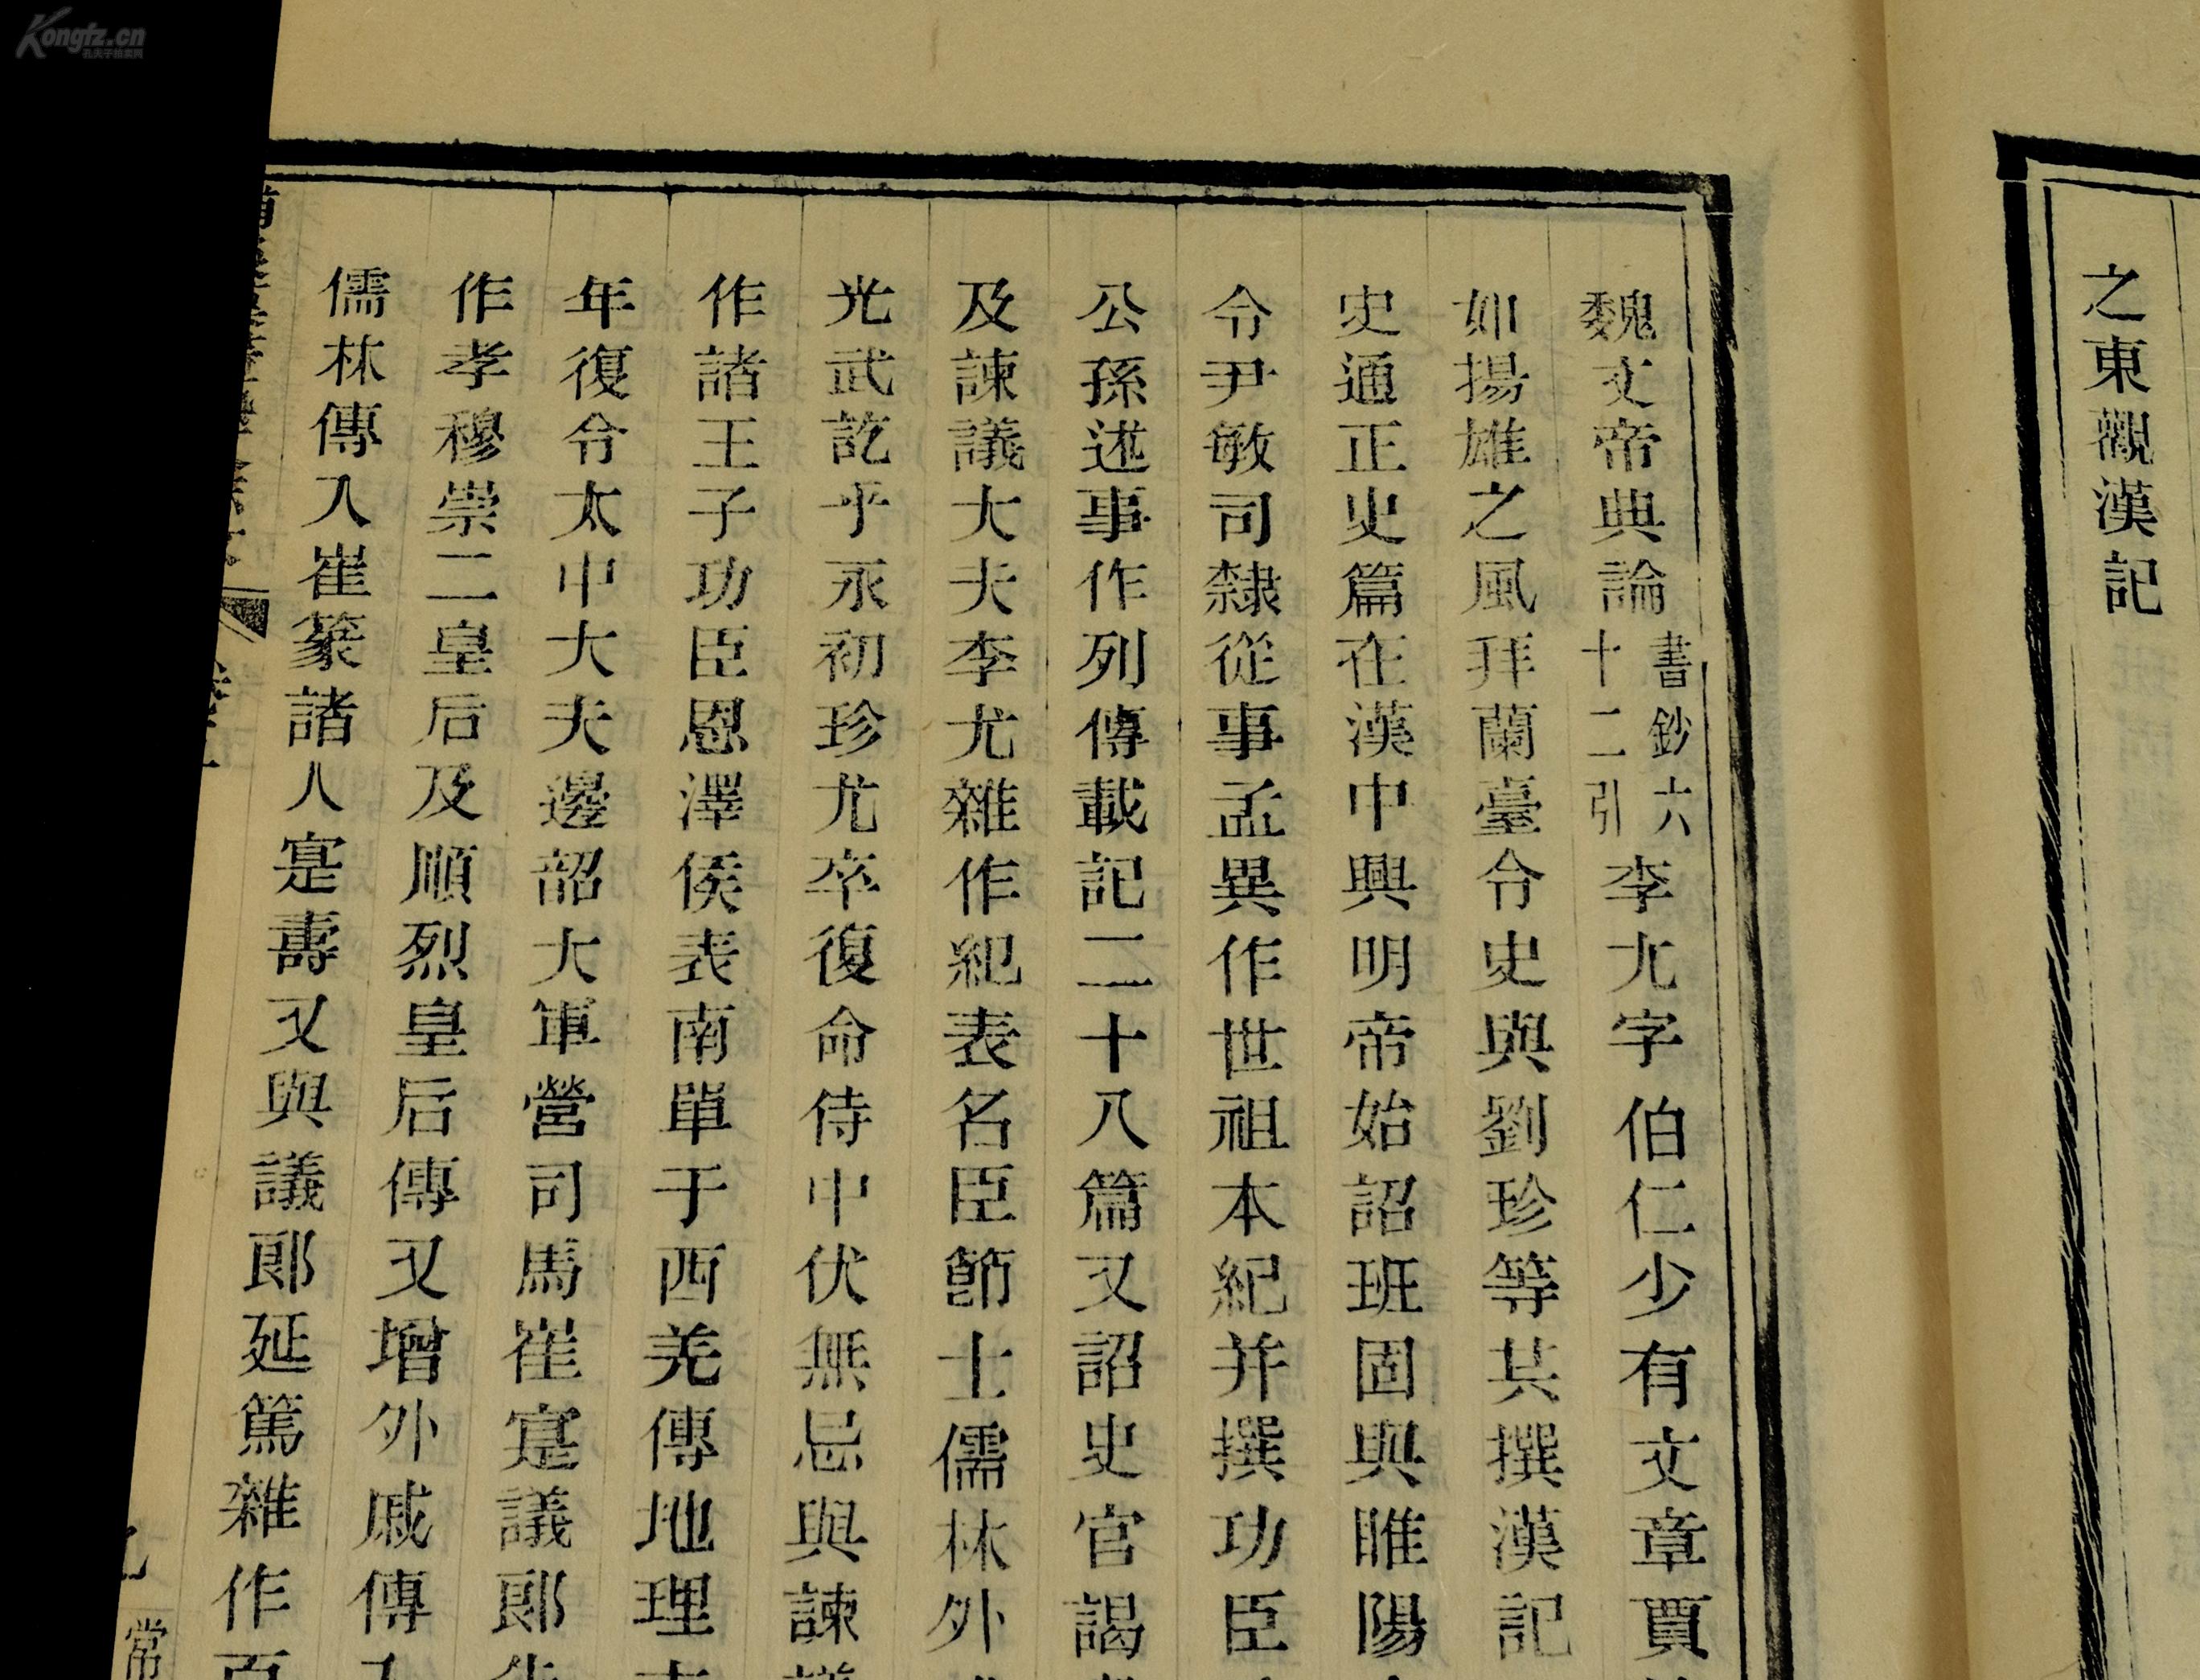 Kongfz.cn
孔夫子拍卖网
之東觀漢記
魏文帝典論書鈔六十二引李尤字伯仁少有文章賈
如揚雄之風拜蘭臺令史與劉珍等共撰漢記
史通正史篇在漢中興明帝始詔班固與睢陽
令尹敏司隸從事孟異作世祖本紀并撰功臣
公孫述事作列傳載記二十八篇又詔史官謁
及諫議大夫李尤雜作紀表名臣節士儒林外
光武訖乎永初珍尤卒復命侍中伏無忌與諫
作諸王子功臣恩澤侯表南單于西羌傳地理
年復令太中大夫邊韶大軍營司馬崔寔議郎
作孝穆崇二皇后及順烈皇后傳又增外戚傳
儒林傳入崔篆諸人寔壽又與議郎延篤雜作百
常